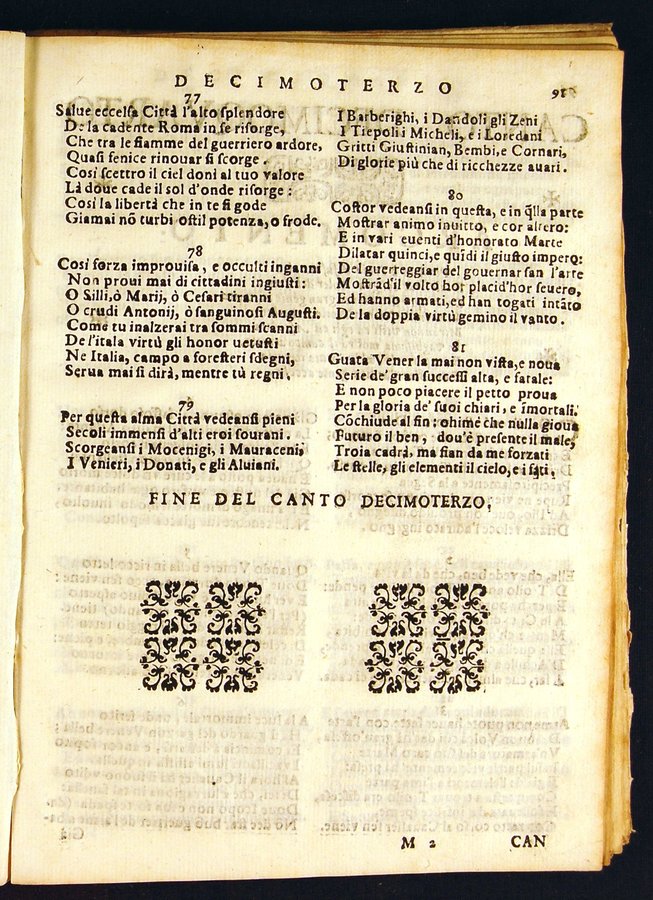 DECIMOTERZO
91
77
Salue eccelsa Città l'alto splendore
De la cadente Roma in se risorge,
Che tra le fiamme del guerriero ardore,
Quasi fenice rinouar si scorge.
Cosi scettro il ciel doni al tuo valore
Là doue cade il sol d'onde risorge:
Cosi la libertà che in te si gode
Giamai nõ turbi ostil potenza, o frode.
78
Cosi forza improuisa, e occulti inganni
Non proui mai di cittadini ingiusti:
O Silli, ò Marij, ò Cesari tiranni
O crudi Antonij, ò sanguinosi Augusti.
Come tu inalzerai tra sommi scanni
De l'itala virtù gli honor uetusti
Ne Italia, campo a foresteri sdegni,
Serua mai si dirà, mentre tù regni.
79
Per questa alma Città vedeansi pieni
Secoli immensi d'alti eroi sourani.
Scorgeansi i Mocenigi, i Mauraceni,
I Venieri, i Donati, e gli Aluiani.
I Barberighi, i Dandoli gli Zeni
I Tiepoli i Micheli, e i Loredani
Gritti Giustinian, Bembi, e Cornari,
Di glorie più che di ricchezze auari.
80
Costor vedeansi in questa, e in q̃lla parte
Mostrar animo inuitto, e cor altero:
E in vari euenti d'honorato Marte
Dilatar quinci, e quĩdi il giusto impero:
Del guerreggiar del gouernar san l'arte
Mostrãd'il volto hor placid'hor seuero,
Ed hanno armati, ed han togati intãto
De la doppia virtù gemino il vanto.
81
Guata Vener la mai non vista, e noua
Serie de' gran successi alta, e fatale:
E non poco piacere il petto proua
Per la gloria de' suoi chiari, e ĩmortali.
Cõchiude al fin: ohime che nulla gioua
Futuro il ben, dou'è presente il male;
Troia cadrà, ma fian da me forzati
Le stelle, gli elementi il cielo, e i fati.
FINE DEL CANTO DECIMOTERZO.
M 2
CAN